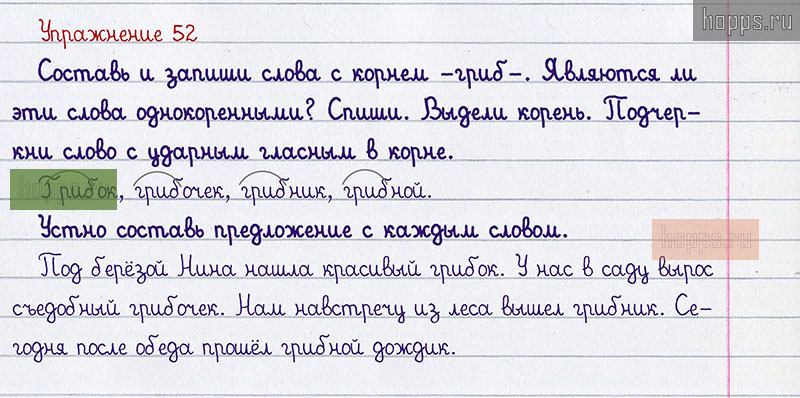 hopps.ru
Упражнение 52
Составь и запиши слова с корнем –гриб–. Являются ли
эти слова однокоренными? Спиши. Выдели корень. Подчер–
кни слово с ударным гласным в корне.
Грибок, грибочек, грибник, грибной.
Устно составь предложение с каждым словом.
hopps.ru
Под берёзой Нина нашла красивый грибок. У нас в саду вырос
съедобный грибочек. Нам навстречу из леса вышел грибник. Се–
годня после обеда прошёл грибной дождик.